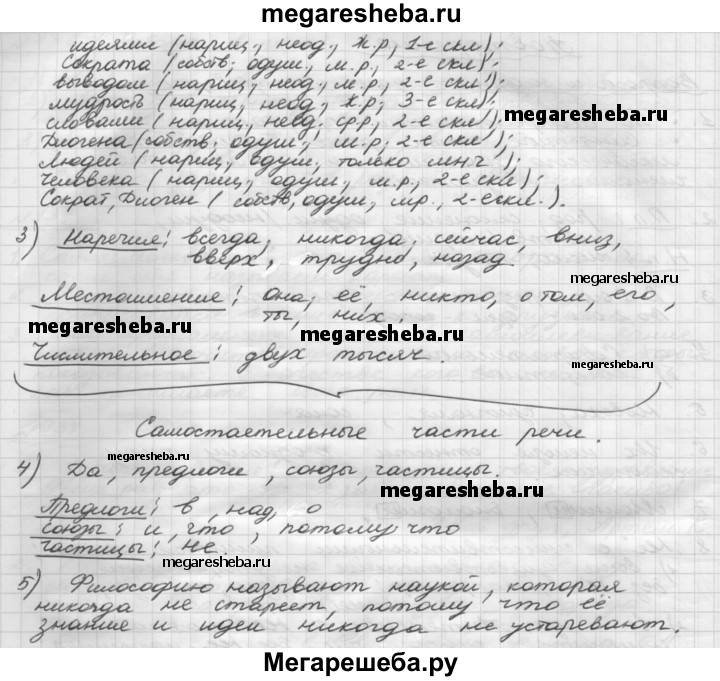 megaresheba.ru
идеями (нариц., неод., ж.р., 1-е скл);
Сократа (собств; одуш., м.р., 2-е скл.);
выводом (нариц., неод., м.р., 2-е скл);
мудрость (нариц., неод., ж.р., 3-е скл);
словами (нариц., неод. ср.р., 2-е скл.);
megaresheba.ru
Диогена (собств; одуш., м.р., 2-е скл);
людей (нариц., одуш., только мн.ч.);
человека (нариц., одуш., м.р., 2-е скл);
Сократ, Диоген (собств, одуш., м.р., 2-е скл.).
3) Наречия: всегда, никогда, сейчас, вниз,
вверх, трудно, назад.
megaresheba.ru
Местоимение: она, её, никто, о том, его,
ты, них.
megaresheba.ru
megaresheba.ru
Числительное: двух тысяч.
megaresheba.ru
Самостоятельные части речи.
megaresheba.ru
4) Да, предлоги, союзы, частицы.
megaresheba.ru
Предлоги: в, над, о
союзы: и, что, потому что
частицы: не.
megaresheba.ru
5) Философию называют наукой, которая
никогда не стареет, потому что её
знание и идеи никогда не устаревают.
Мегарешеба.ру